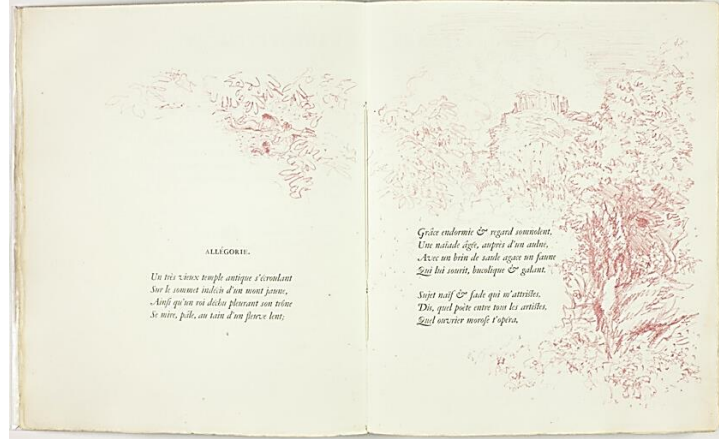 ALLÉGORIE.
Un très vieux temple antique s'écroulant
Sur le sommet indécis d'un mont jaune,
Ainsi qu'un roi déchu pleurant son trône
Se mire, pâle, au tain d'un fleuve lent;
Grâce endormie & regard somnolent,
Une naïade âgée, auprès d'un aulne,
Avec un brin de saule agace un faune
Qui lui sourit, bucolique & galant.
Sujet naïf & fade qui m'attristes,
Dis, quel poète entre tous les artistes,
Quel ouvrier morose t'opéra,